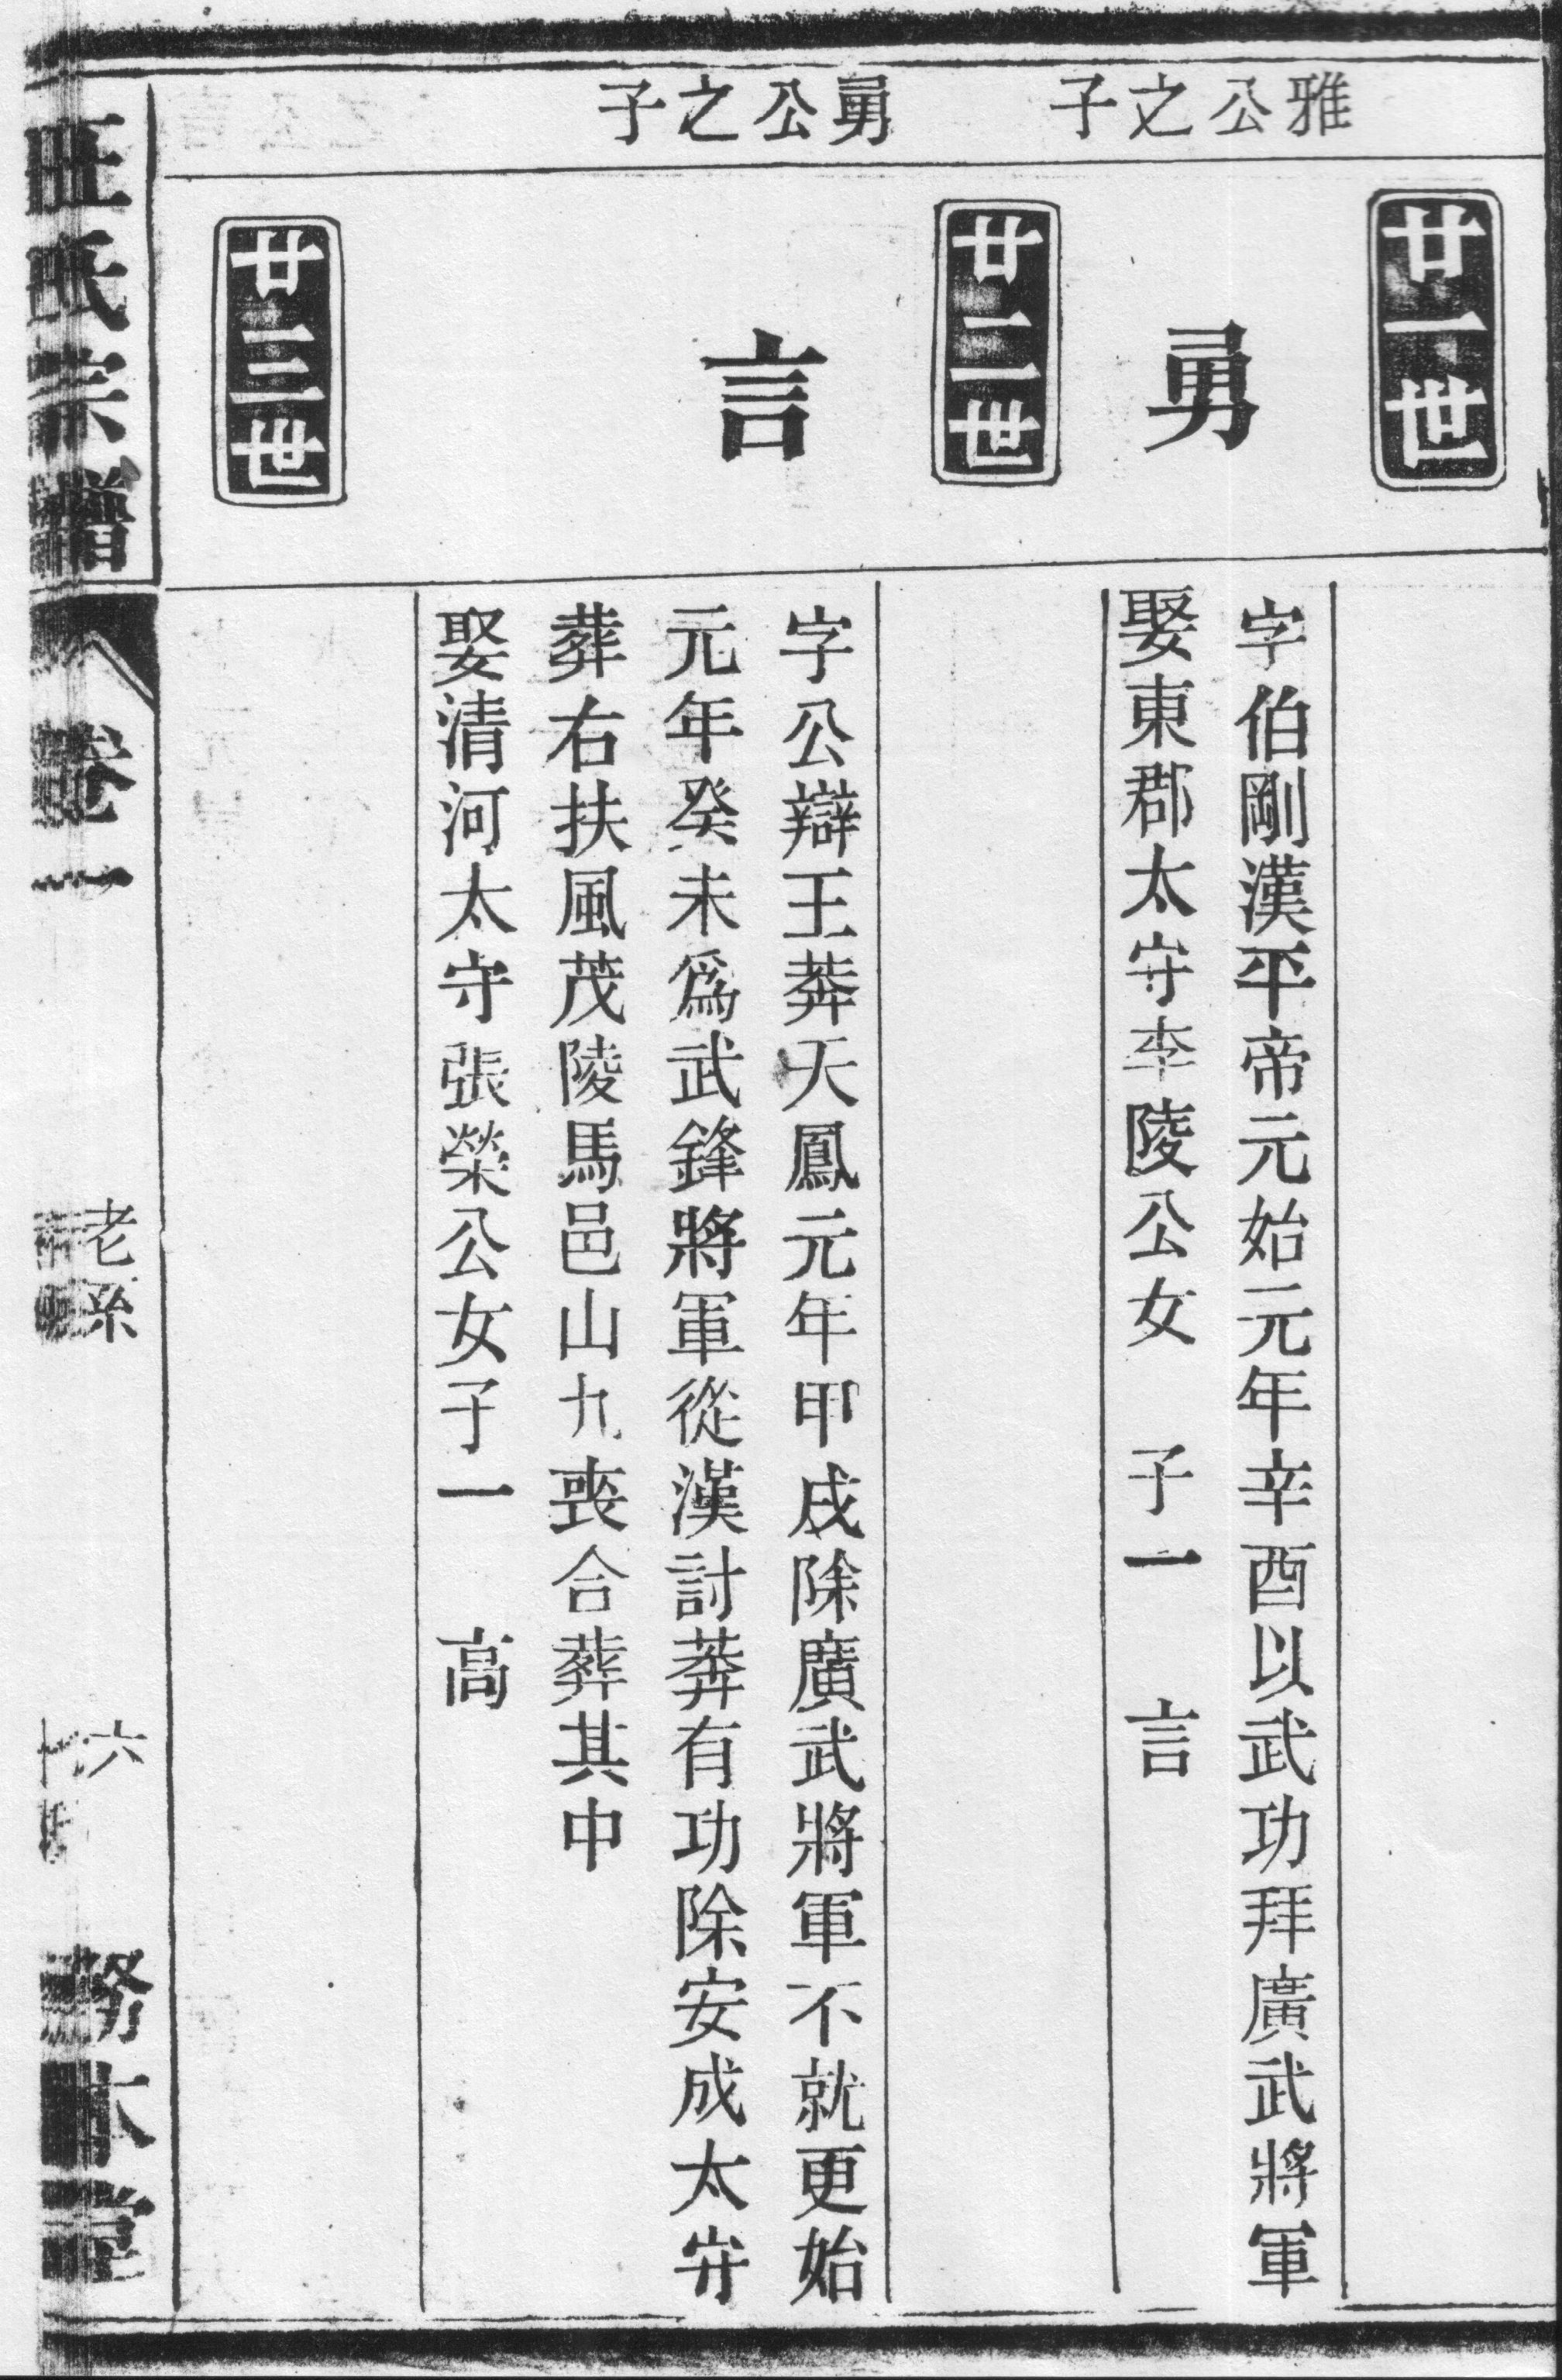 雅公之子
勇公之子
廿一世
勇
廿二世
言
廿三世
字伯剛漢平帝元始元年辛酉以武功拜廣武將軍
娶東郡太守李陵公女 子一 言
字公辯王莽天鳳元年甲戌除廣武將軍不就更始
元年癸未為武鋒將軍從漢討莽有功除安成太守
葬右扶風茂陵馬邑山九喪合葬其中
娶清河太守張榮公女子一 高
汪氏宗譜
卷一
老系
六
務本堂